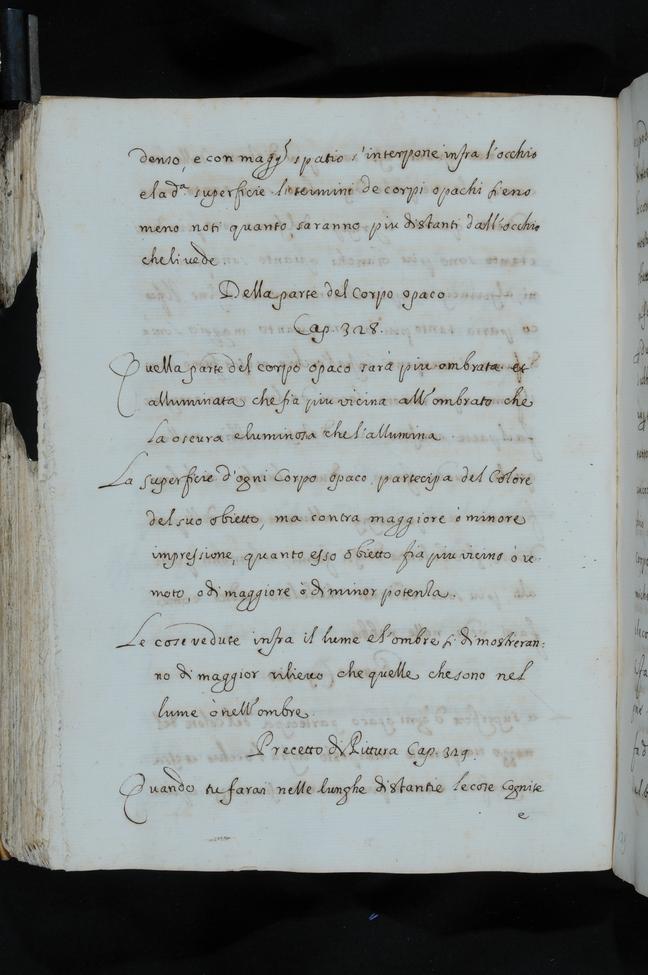 denso, e con magg.r spatio s'interpone infra l'occhio
e la d.a superficie li termini de corpi opachi fieno
meno noti quanto saranno piu distanti dall'occhio
che li vede
Della parte del Corpo opaco
Cap. 328.
Quella parte del corpo opaco sarà piu ombrata et
alluminata che fia piu vicina all'ombrato che
la oscura e luminosa che l'allumina
La superficie d'ogni Corpo opaco partecipa del Colore
del suo obietto, ma con tra maggiore ò minore
impressione, quanto esso obietto fia piu vicino ò re
moto, o di maggiore ò di minor potenza.
Le cose vedute infra il lume e l'ombre si dimostreran:
no di maggior rilievo che quelle che sono nel
lume ò nell'ombre
Precetto di Pittura Cap. 329.
Quando tu farai nelle lunghe distantie le cose Cognite
e